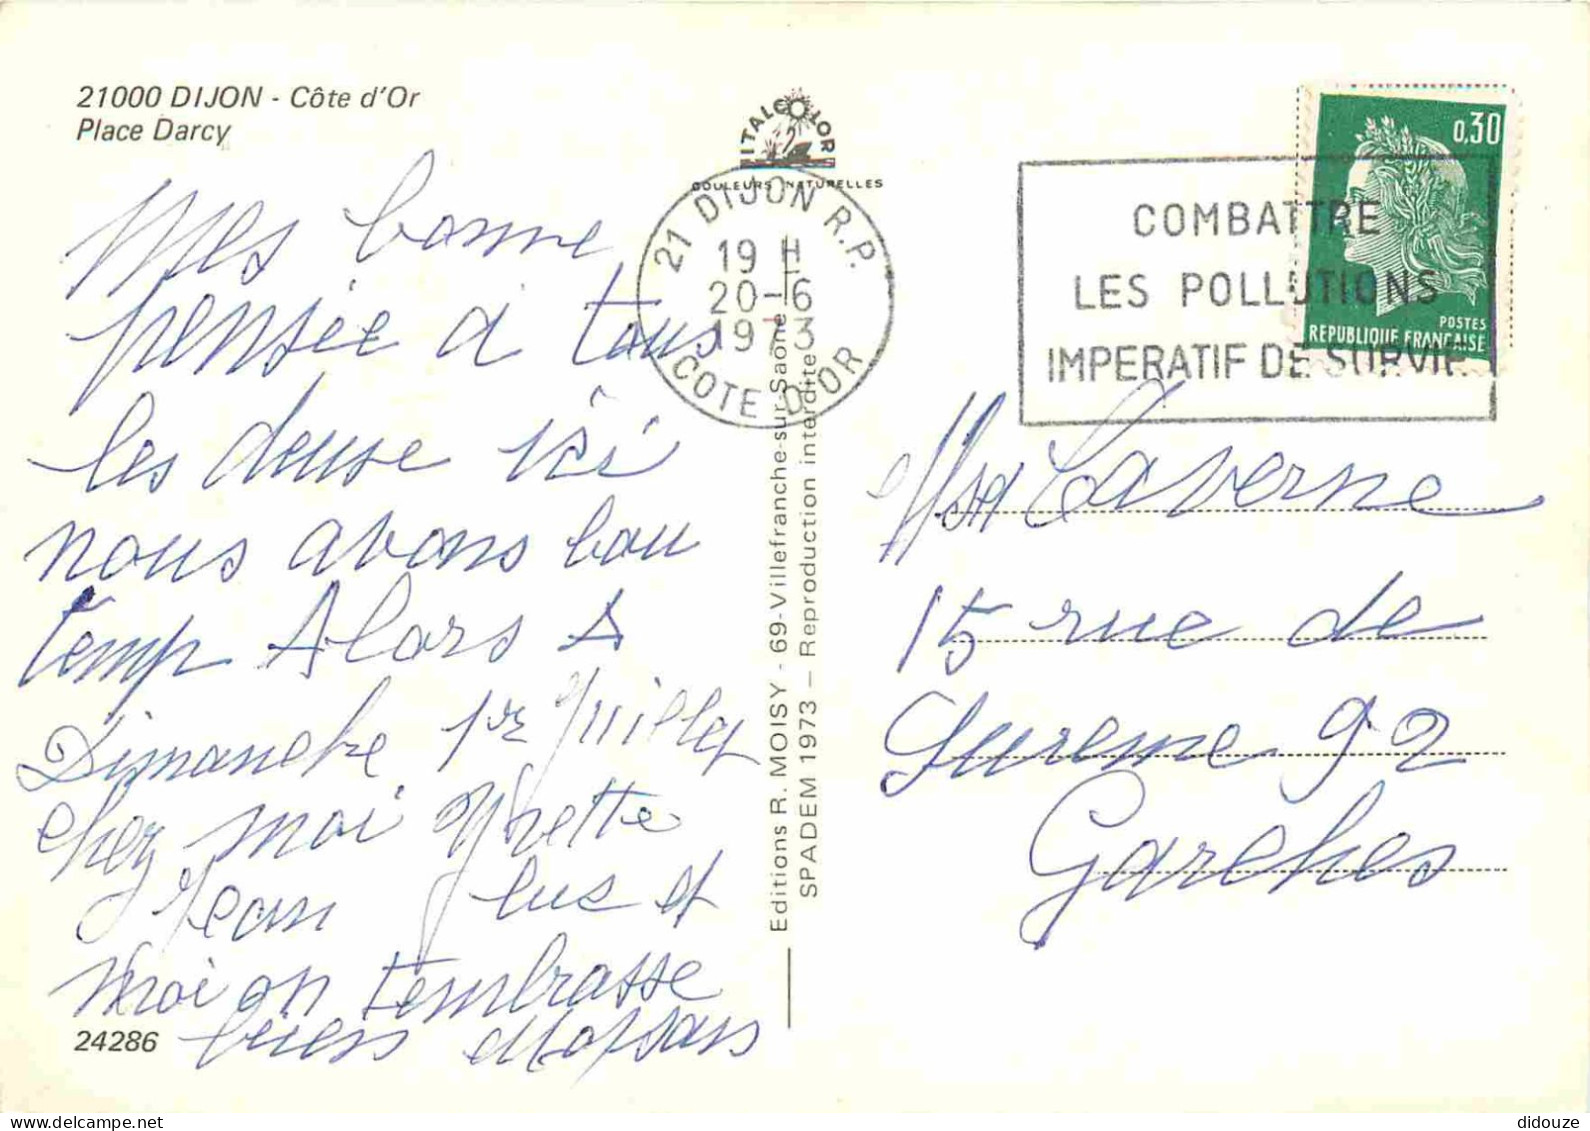 21000 DIJON - Côte d'Or
Place Darcy
Mes bonne
pensée à tous
les deuse isi
nous avons bou
temp Alors A
Dimanche 1er Juillet
chez moi Yvette
Jean
moi on t'embrasse
biens
24286
ITALCOLOR
COULEURS NATURELLES
21 DIJON R.P.
19 H
20-6
1973
COTE D'OR
Editions R. MOISY - 69-Villefranche-sur-Saône
SPADEM 1973 – Reproduction interdite
COMBATTRE
LES POLLUTIONS
IMPERATIF DE SURVIE
0,30
POSTES
REPUBLIQUE FRANÇAISE
Caverne
15 rue de
Sureme 92
Garches
didouze